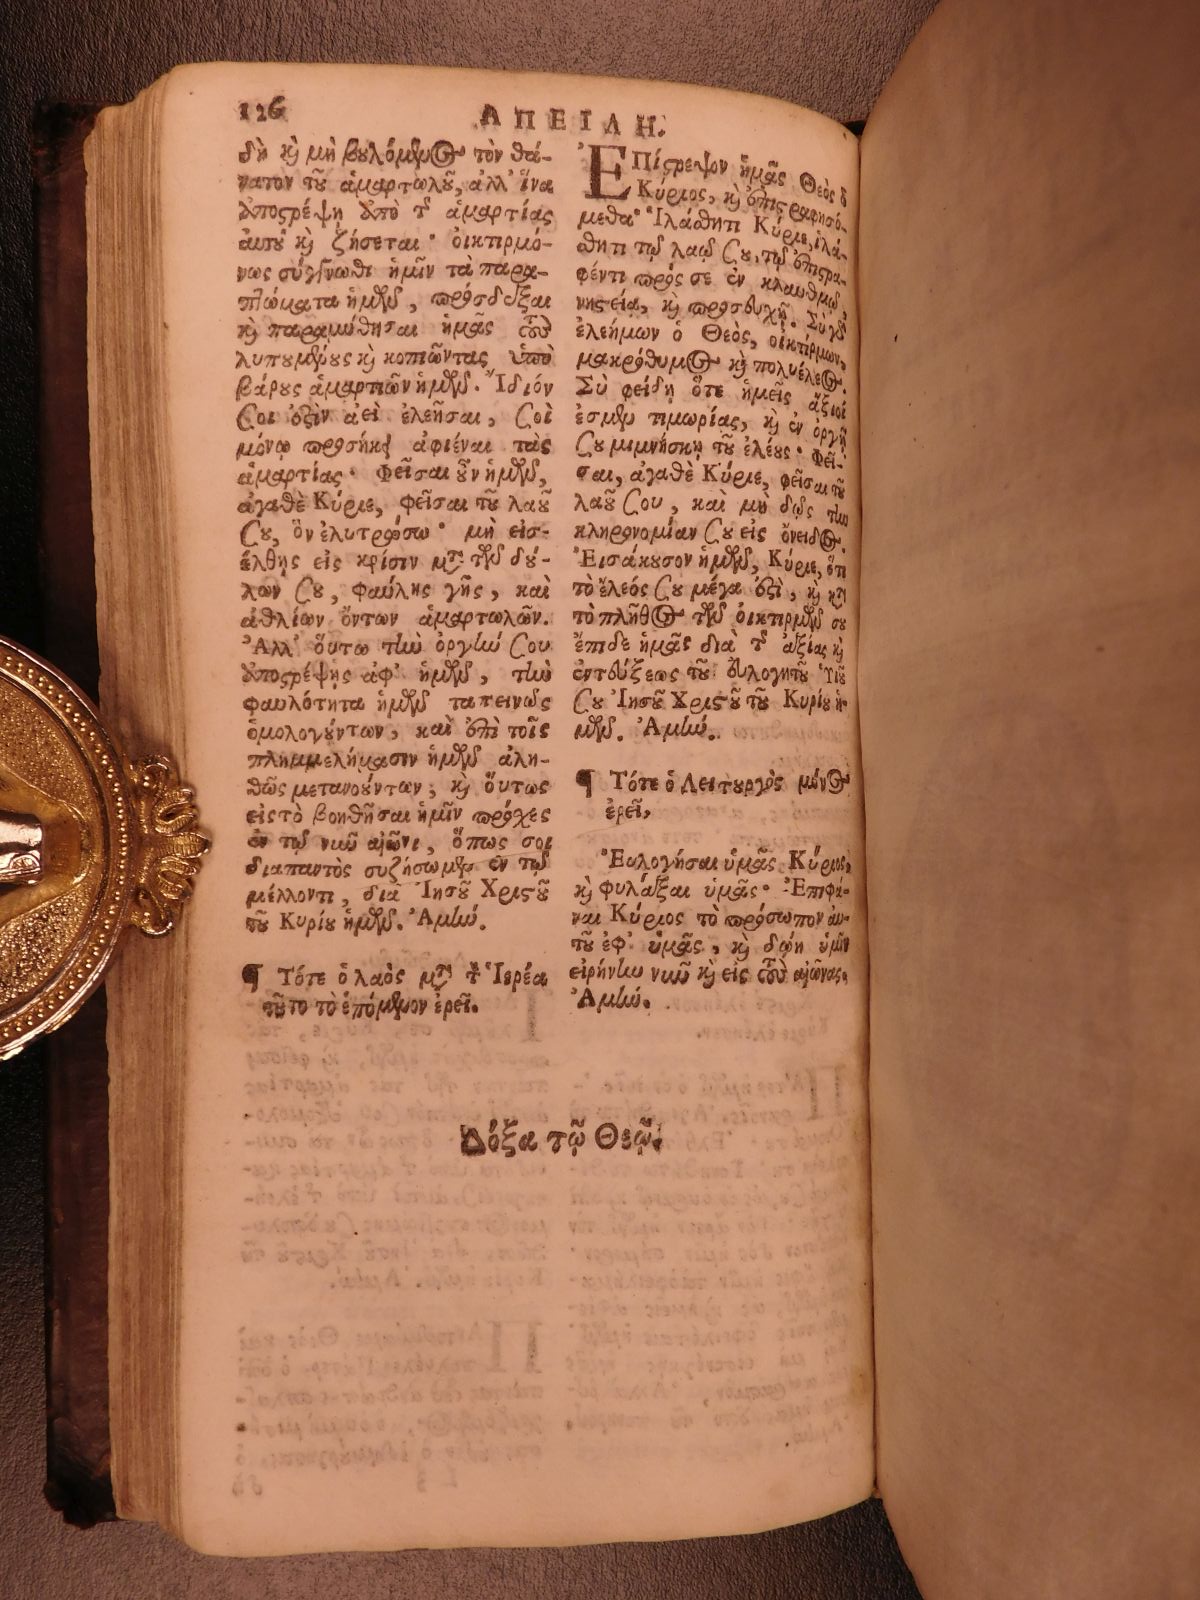 126
ΑΠΕΙΛΗ.
δὴ καὶ μὴ βουλόμενος τὸν θά-
νατον τοῦ ἁμαρτωλοῦ, ἀλλ' ἵνα
ἀποστρέψῃ ἀπὸ τῆς ἁμαρτίας
αὐτοῦ καὶ ζήσεται· οἰκτιρμό-
νως σύγγνωθι ἡμῖν τὰ παρα-
πτώματα ἡμῶν, πρόσδεξαι
καὶ παραμύθησαι ἡμᾶς τοὺς
λυπουμένους καὶ κοπιῶντας ὑπὸ
βάρους ἁμαρτιῶν ἡμῶν. Ἴδιόν
Σοι ἐστὶν ἀεὶ ἐλεῆσαι, Σοὶ
μόνῳ προσήκει ἀφιέναι τὰς
ἁμαρτίας· Φεῖσαι οὖν ἡμῶν,
ἀγαθὲ Κύριε, φεῖσαι τοῦ λαοῦ
Σου, ὃν ἐλυτρώσω· μὴ εἰσ-
έλθῃς εἰς κρίσιν μετὰ τῶν δού-
λων Σου, φαύλης γῆς, καὶ
ἀθλίων ὄντων ἁμαρτωλῶν.
Ἀλλ' οὕτω τὴν ὀργὴν Σου
ἀποστρέψῃς ἀφ' ἡμῶν, τὴν
φαυλότητα ἡμῶν ταπεινῶς
ὁμολογούντων, καὶ ἐπὶ τοῖς
πλημμελήμασιν ἡμῶν ἀλη-
θῶς μετανοούντων, καὶ οὕτως
εἰς τὸ βοηθῆσαι ἡμῖν πρόχες
ἐν τῷ νῦν αἰῶνι, ὅπως σοι
διαπαντὸς συζήσωμεν ἐν τῷ
μέλλοντι, διὰ Ἰησοῦ Χριστοῦ
τοῦ Κυρίου ἡμῶν. Ἀμήν.
¶ Τότε ὁ λαὸς μετὰ τὸν Ἱερέα
τοῦτο τὸ ἑπόμενον ἐρεῖ.
ἘΠίστρεψον ἡμᾶς Θεὸς ὁ
Κύριος, καὶ ἐπιστραφησό-
μεθα· Ἱλάσθητι Κύριε, ἱλά-
σθητι τῷ λαῷ Σου, τῷ ἐπιστρα-
φέντι πρός σε ἐν κλαυθμῷ,
νηστείᾳ, καὶ προσευχῇ. Σὺ γὰρ
ἐλεήμων ὁ Θεὸς, οἰκτίρμων,
μακρόθυμος καὶ πολυέλεος.
Σὺ φείδῃ ὅτε ἡμεῖς ἄξιοί
ἐσμεν τιμωρίας, καὶ ἐν ὀργῇ
Σου μιμνήσκῃ τοῦ ἐλέους· Φεῖ-
σαι, ἀγαθὲ Κύριε, φεῖσαι τοῦ
λαοῦ Σου, καὶ μὴ δῷς τὴν
κληρονομίαν Σου εἰς ὄνειδος.
Ἐισάκουσον ἡμῶν, Κύριε, ὅτι
τὸ ἔλεός Σου μέγα ἐστὶ, καὶ κατὰ
τὸ πλῆθος τῶν οἰκτιρμῶν σου
ἔπιδε ἡμᾶς διὰ τῆς ἀξίας καὶ
ἐντεύξεως τοῦ εὐλογητοῦ Υἱοῦ
Σου Ἰησοῦ Χριστοῦ τοῦ Κυρίου ἡ-
μῶν. Ἀμήν.
¶ Τότε ὁ Λειτουργὸς μόνος
ἐρεῖ,
Ἐυλογήσαι ὑμᾶς Κύριος,
καὶ φυλάξαι ὑμᾶς· Ἐπιφά-
ναι Κύριος τὸ πρόσωπον αὐ-
τοῦ ἐφ' ὑμᾶς, καὶ δῴη ὑμῖν
εἰρήνην νῦν καὶ εἰς τοὺς αἰῶνας.
Ἀμήν.
Δόξα τῷ Θεῷ.